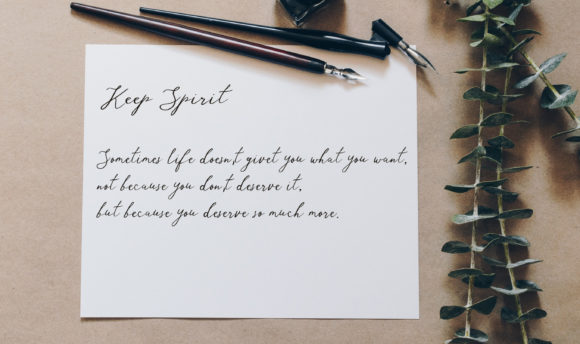 Keep Spirit
Sometimes life doesn't givet you what you want,
not because you don't deserve it,
but because you deserve so much more.